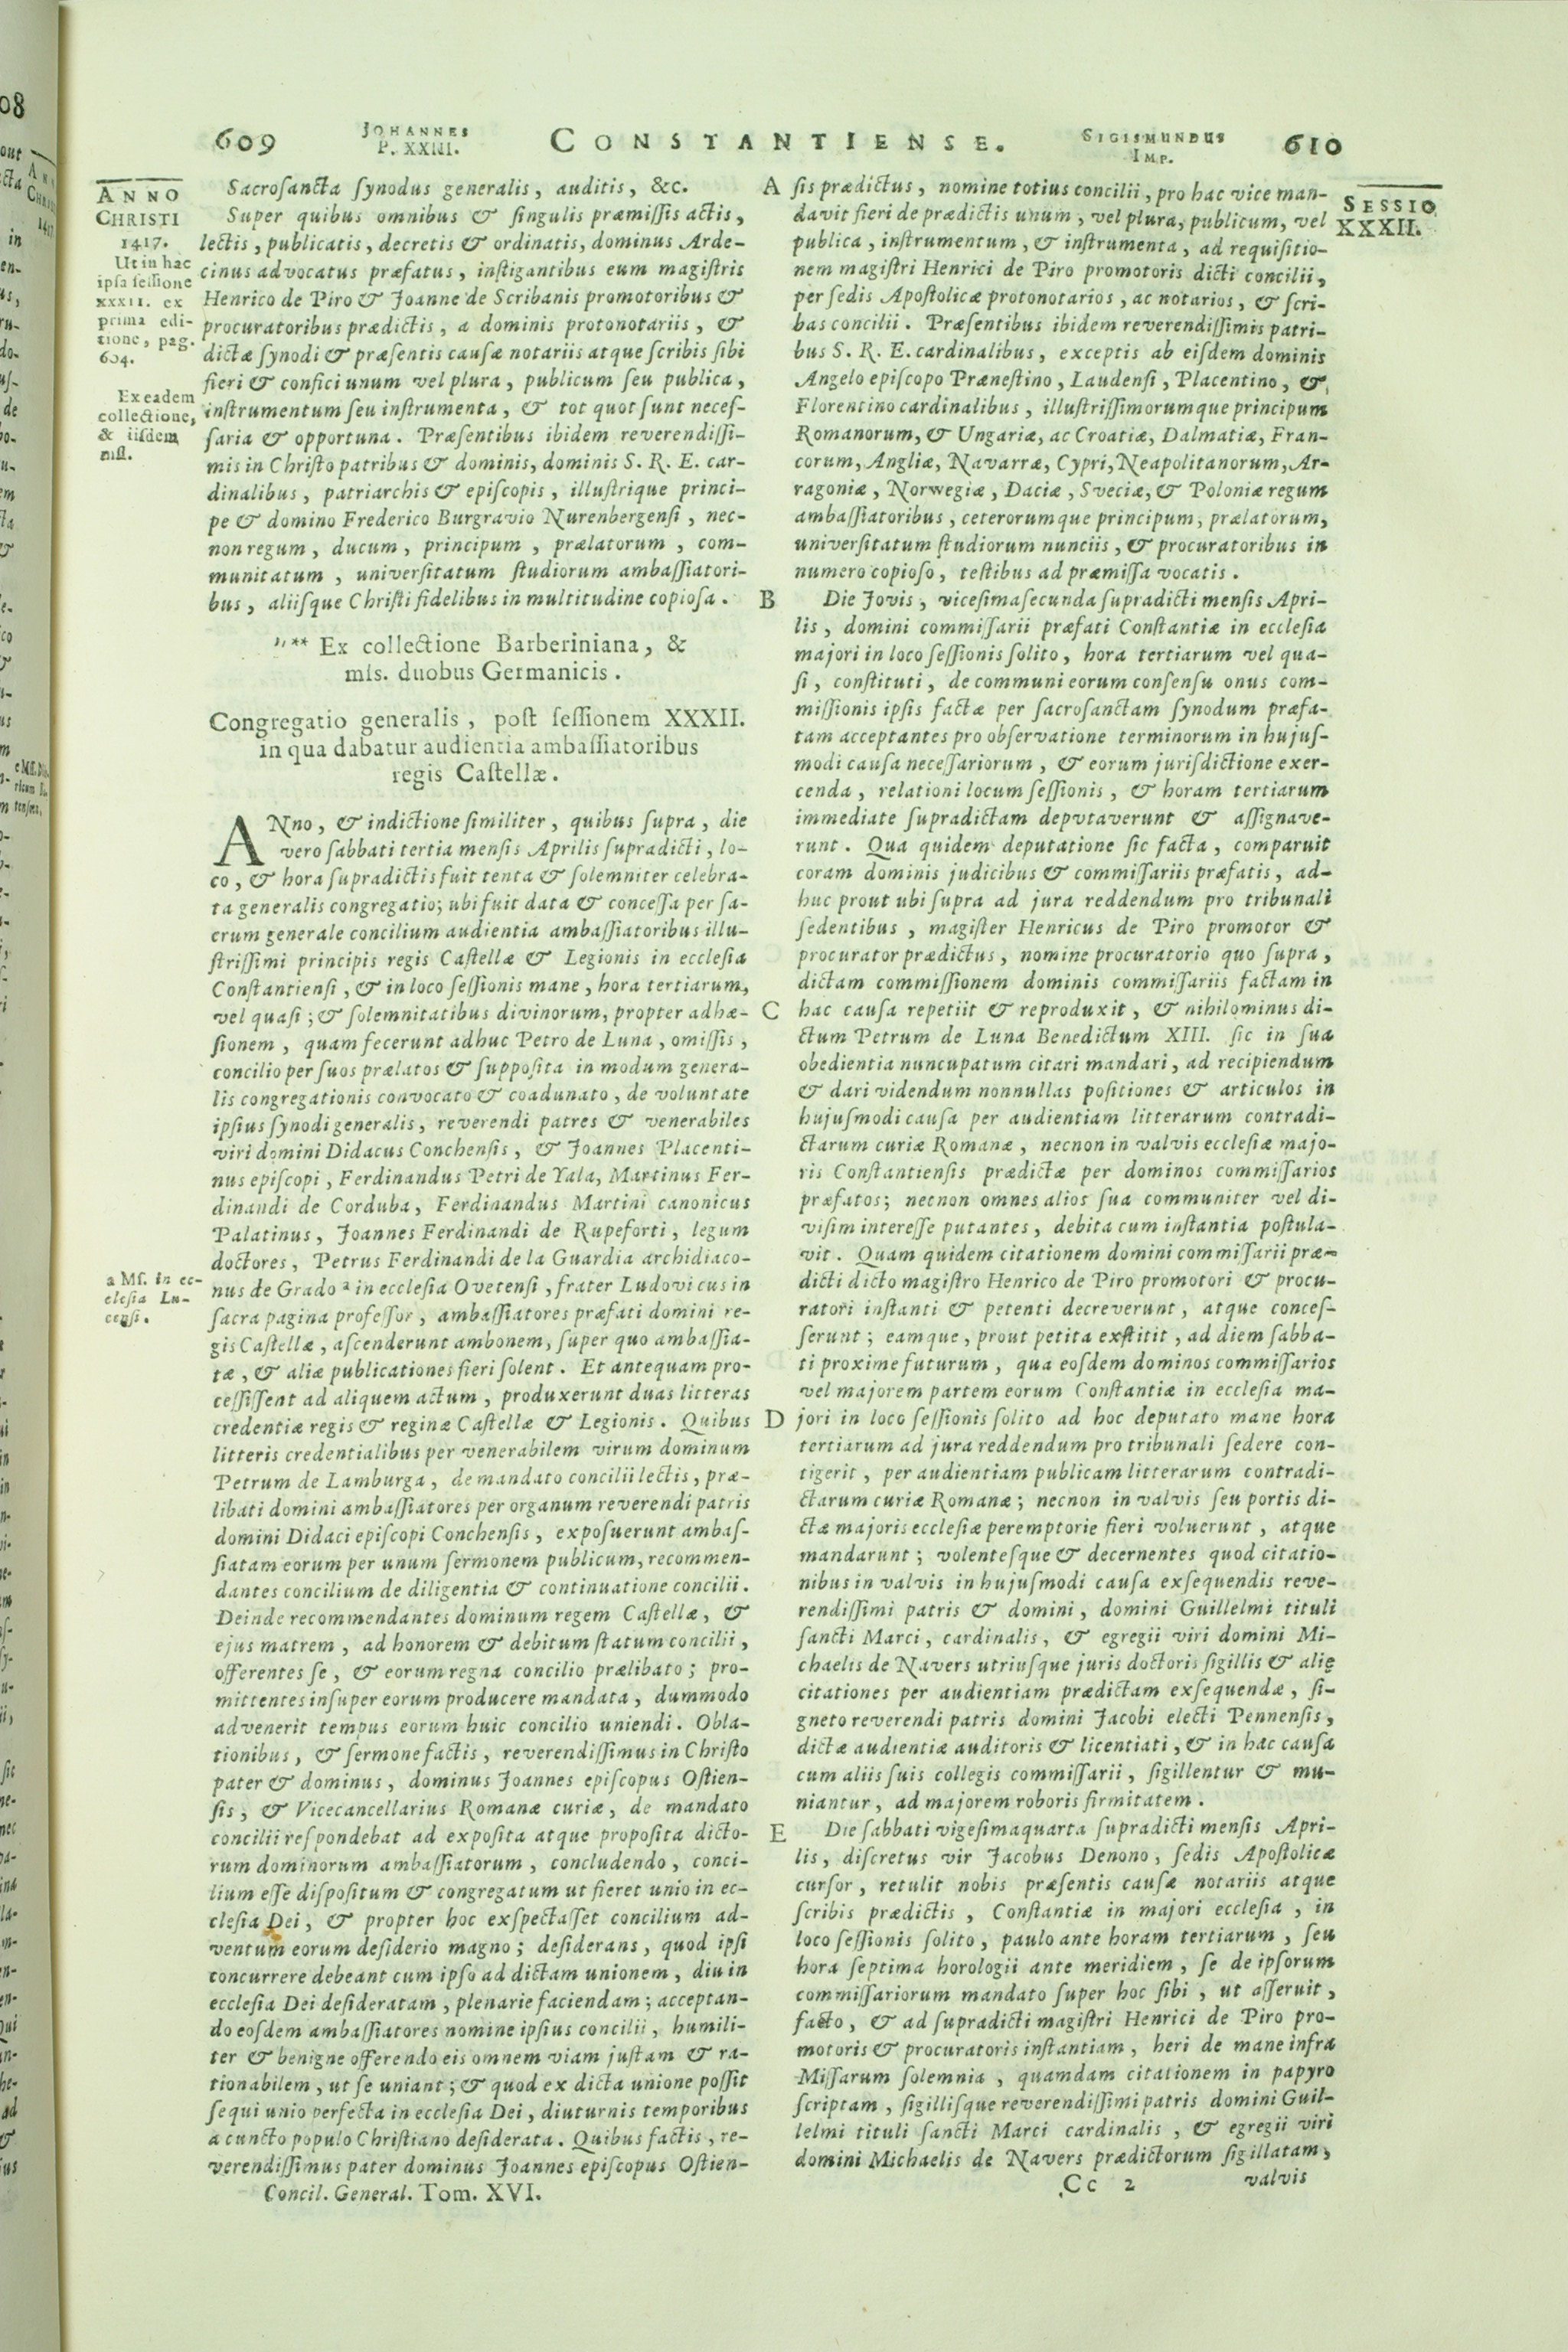 609
JOHANNES
P. XXIII.
CONSTANTIENSE.
SIGISMUNDUS
IMP.
610
ANNO
CHRISTI
1417.
Ut in hac
ipsa sessione
XXXII. ex
prima edi-
tione, pag.
604.
Ex eadem
collectione,
& iisdem
mss.
Sacrosancta synodus generalis, auditis, &c.
Super quibus omnibus & singulis præmissis actis,
lectis, publicatis, decretis & ordinatis, dominus Arde-
cinus advocatus præfatus, instigantibus eum magistris
Henrico de Piro & Joanne de Scribanis promotoribus &
procuratoribus prædictis, a dominis protonotariis, &
dictæ synodi & præsentis causæ notariis atque scribis sibi
fieri & confici unum vel plura, publicum seu publica,
instrumentum seu instrumenta, & tot quot sunt neces-
saria & opportuna. Præsentibus ibidem reverendissi-
mis in Christo patribus & dominis, dominis S. R. E. car-
dinalibus, patriarchis & episcopis, illustrique princi-
pe & domino Frederico Burgravio Nurenbergensi, nec-
non regum, ducum, principum, prælatorum, com-
munitatum, universitatum studiorum ambassiatori-
bus, aliisque Christi fidelibus in multitudine copiosa.
,,** Ex collectione Barberiniana, &
mss. duobus Germanicis.
Congregatio generalis, post sessionem XXXII.
in qua dabatur audientia ambassiatoribus
regis Castellæ.
ANno, & indictione similiter, quibus supra, die
vero sabbati tertia mensis Aprilis supradicti, lo-
co, & hora supradictis fuit tenta & solemniter celebra-
ta generalis congregatio; ubi fuit data & concessa per sa-
crum generale concilium audientia ambassiatoribus illu-
strissimi principis regis Castellæ & Legionis in ecclesia
Constantiensi, & in loco sessionis mane, hora tertiarum,
vel quasi; & solemnitatibus divinorum, propter adhæ-
sionem, quam fecerunt adhuc Petro de Luna, omissis,
concilio per suos prælatos & supposita in modum genera-
lis congregationis convocato & coadunato, de voluntate
ipsius synodi generalis, reverendi patres & venerabiles
viri domini Didacus Conchensis, & Joannes Placenti-
nus episcopi, Ferdinandus Petri de Yala, Martinus Fer-
dinandi de Corduba, Ferdinandus Martini canonicus
Palatinus, Joannes Ferdinandi de Rupeforti, legum
doctores, Petrus Ferdinandi de la Guardia archidiaco-
nus de Grado a in ecclesia Ovetensi, frater Ludovicus in
sacra pagina professor, ambassiatores præfati domini re-
gis Castellæ, ascenderunt ambonem, super quo ambassia-
tæ, & aliæ publicationes fieri solent. Et antequam pro-
cessissent ad aliquem actum, produxerunt duas litteras
credentiæ regis & reginæ Castellæ & Legionis. Quibus
litteris credentialibus per venerabilem virum dominum
Petrum de Lamburga, de mandato concilii lectis, præ-
libati domini ambassiatores per organum reverendi patris
domini Didaci episcopi Conchensis, exposuerunt ambas-
siatam eorum per unum sermonem publicum, recommen-
dantes concilium de diligentia & continuatione concilii.
Deinde recommendantes dominum regem Castellæ, &
ejus matrem, ad honorem & debitum statum concilii,
offerentes se, & eorum regna concilio prælibato; pro-
mittentes insuper eorum producere mandata, dummodo
advenerit tempus eorum huic concilio uniendi. Obla-
tionibus, & sermone factis, reverendissimus in Christo
pater & dominus, dominus Joannes episcopus Ostien-
sis, & Vicecancellarius Romanæ curiæ, de mandato
concilii respondebat ad exposita atque proposita dicto-
rum dominorum ambassiatorum, concludendo, conci-
lium esse dispositum & congregatum ut fieret unio in ec-
clesia Dei, & propter hoc exspectasset concilium ad-
ventum eorum desiderio magno; desiderans, quod ipsi
concurrere debeant cum ipso ad dictam unionem, diu in
ecclesia Dei desideratam, plenarie faciendam; acceptan-
do eosdem ambassiatores nomine ipsius concilii, humili-
ter & benigne offerendo eis omnem viam justam & ra-
tionabilem, ut se uniant; & quod ex dicta unione possit
sequi unio perfecta in ecclesia Dei, diuturnis temporibus
a cuncto populo Christiano desiderata. Quibus factis, re-
verendissimus pater dominus Joannes episcopus Ostien-
Concil. General. Tom. XVI.
a Ms. in ec-
clesia Lu-
censi.
A
B
C
D
E
sis prædictus, nomine totius concilii, pro hac vice man-
davit fieri de prædictis unum, vel plura, publicum, vel
publica, instrumentum, & instrumenta, ad requisitio-
nem magistri Henrici de Piro promotoris dicti concilii,
per sedis Apostolicæ protonotarios, ac notarios, & scri-
bas concilii. Præsentibus ibidem reverendissimis patri-
bus S. R. E. cardinalibus, exceptis ab eisdem dominis
Angelo episcopo Prænestino, Laudensi, Placentino, &
Florentino cardinalibus, illustrissimorumque principum
Romanorum, & Ungariæ, ac Croatiæ, Dalmatiæ, Fran-
corum, Angliæ, Navarræ, Cypri, Neapolitanorum, Ar-
ragoniæ, Norwegiæ, Daciæ, Sveciæ, & Poloniæ regum
ambassiatoribus, ceterorumque principum, prælatorum,
universitatum studiorum nunciis, & procuratoribus in
numero copioso, testibus ad præmissa vocatis.
Die Jovis, vicesimasecunda supradicti mensis Apri-
lis, domini commissarii præfati Constantiæ in ecclesia
majori in loco sessionis solito, hora tertiarum vel qua-
si, constituti, de communi eorum consensu onus com-
missionis ipsis factæ per sacrosanctam synodum præfa-
tam acceptantes pro observatione terminorum in hujus-
modi causa necessariorum, & eorum jurisdictione exer-
cenda, relationi locum sessionis, & horam tertiarum
immediate supradictam deputaverunt & assignave-
runt. Qua quidem deputatione sic facta, comparuit
coram dominis judicibus & commissariis præfatis, ad-
huc prout ubi supra ad jura reddendum pro tribunali
sedentibus, magister Henricus de Piro promotor &
procurator prædictus, nomine procuratorio quo supra,
dictam commissionem dominis commissariis factam in
hac causa repetiit & reproduxit, & nihilominus di-
ctum Petrum de Luna Benedictum XIII. sic in sua
obedientia nuncupatum citari mandari, ad recipiendum
& dari videndum nonnullas positiones & articulos in
hujusmodi causa per audientiam litterarum contradi-
ctarum curiæ Romanæ, necnon in valvis ecclesiæ majo-
ris Constantiensis prædictæ per dominos commissarios
præfatos; necnon omnes alios sua communiter vel di-
visim interesse putantes, debita cum instantia postula-
vit. Quam quidem citationem domini commissarii præ-
dicti dicto magistro Henrico de Piro promotori & procu-
ratori instanti & petenti decreverunt, atque conces-
serunt; eamque, prout petita exstitit, ad diem sabba-
ti proxime futurum, qua eosdem dominos commissarios
vel majorem partem eorum Constantiæ in ecclesia ma-
jori in loco sessionis solito ad hoc deputato mane hora
tertiarum ad jura reddendum pro tribunali sedere con-
tigerit, per audientiam publicam litterarum contradi-
ctarum curiæ Romanæ; necnon in valvis seu portis di-
ctæ majoris ecclesiæ peremptorie fieri voluerunt, atque
mandarunt; volentesque & decernentes quod citatio-
nibus in valvis in hujusmodi causa exsequendis reve-
rendissimi patris & domini, domini Guillelmi tituli
sancti Marci, cardinalis, & egregii viri domini Mi-
chaelis de Navers utriusque juris doctoris sigillis & alię
citationes per audientiam prædictam exsequendæ, si-
gneto reverendi patris domini Jacobi electi Pennensis,
dictæ audientiæ auditoris & licentiati, & in hac causa
cum aliis suis collegis commissarii, sigillentur & mu-
niantur, ad majorem roboris firmitatem.
Die sabbati vigesimaquarta supradicti mensis Apri-
lis, discretus vir Jacobus Denono, sedis Apostolicæ
cursor, retulit nobis præsentis causæ notariis atque
scribis prædictis, Constantiæ in majori ecclesia, in
loco sessionis solito, paulo ante horam tertiarum, seu
hora septima horologii ante meridiem, se de ipsorum
commissariorum mandato super hoc sibi, ut asseruit,
facto, & ad supradicti magistri Henrici de Piro pro-
motoris & procuratoris instantiam, heri de mane infra
Missarum solemnia, quamdam citationem in papyro
scriptam, sigillisque reverendissimi patris domini Guil-
lelmi tituli sancti Marci cardinalis, & egregii viri
domini Michaelis de Navers prædictorum sigillatam,
Cc 2
valvis
SESSIO
XXXII.